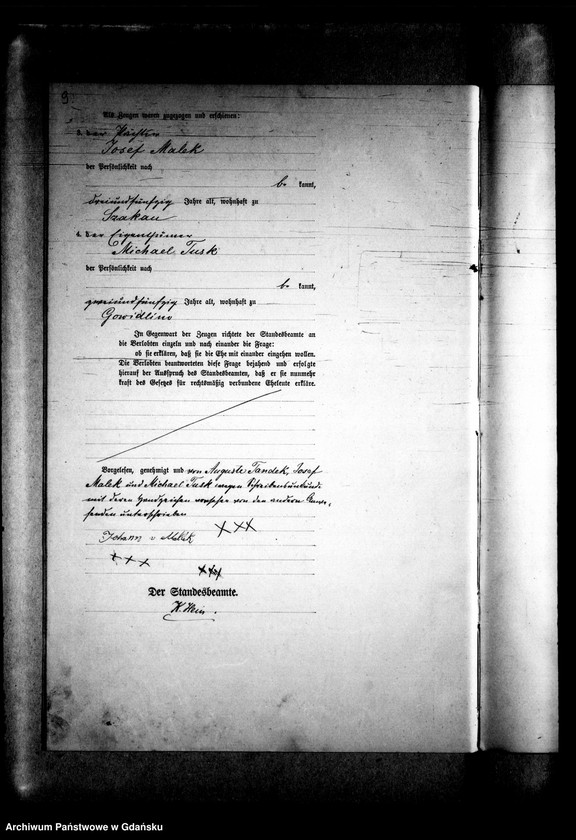 9
Als Zeugen waren zugezogen und erschienen:
3. der Pächter
Josef Malek
der Persönlichkeit nach
be kannt,
dreiundfünfzig Jahre alt, wohnhaft zu
Szakau
4. der Eigenthümer
Michael Tusk
der Persönlichkeit nach
be kannt,
zweiundfünfzig Jahre alt, wohnhaft zu
Gowidlino
In Gegenwart der Zeugen richtete der Standesbeamte an
die Verlobten einzeln und nach einander die Frage:
ob sie erklären, daß sie die Ehe mit einander eingehen wollen.
Die Verlobten beantworteten diese Frage bejahend und erfolgte
hierauf der Ausspruch des Standesbeamten, daß er sie nunmehr
kraft des Gesetzes für rechtmäßig verbundene Eheleute erkläre.
Vorgelesen, genehmigt und von Auguste Tandek, Josef
Malek und Michael Tusk wegen Schreibensunkunde
mit deren Handzeichen versehen von den andern Anwe-
senden unterschrieben
Johann v Malek
XXX
XXX
XXX
Der Standesbeamte.
K. Hein.
Archiwum Państwowe w Gdańsku